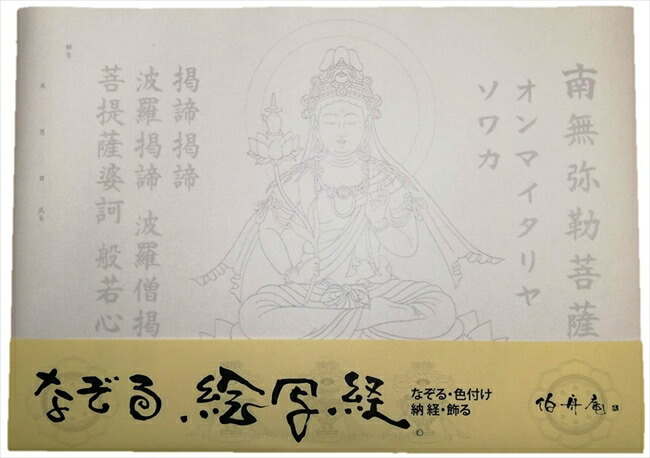 南無弥勒菩薩
オンマイタリヤ
ソワカ
掲諦掲諦
波羅掲諦 波羅僧掲
菩提薩婆訶 般若心
年 月 日 氏名
なぞる絵写経。
なぞる・色付け
納経・飾る